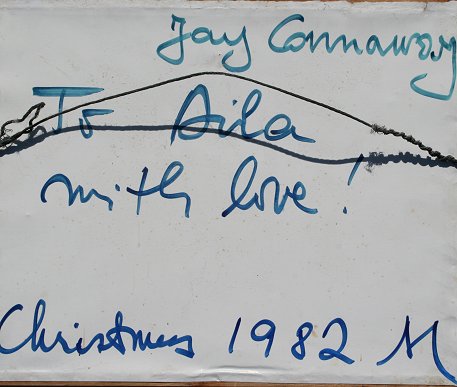 Jay Connaway
To Aila
with love!
Christmas 1982 M